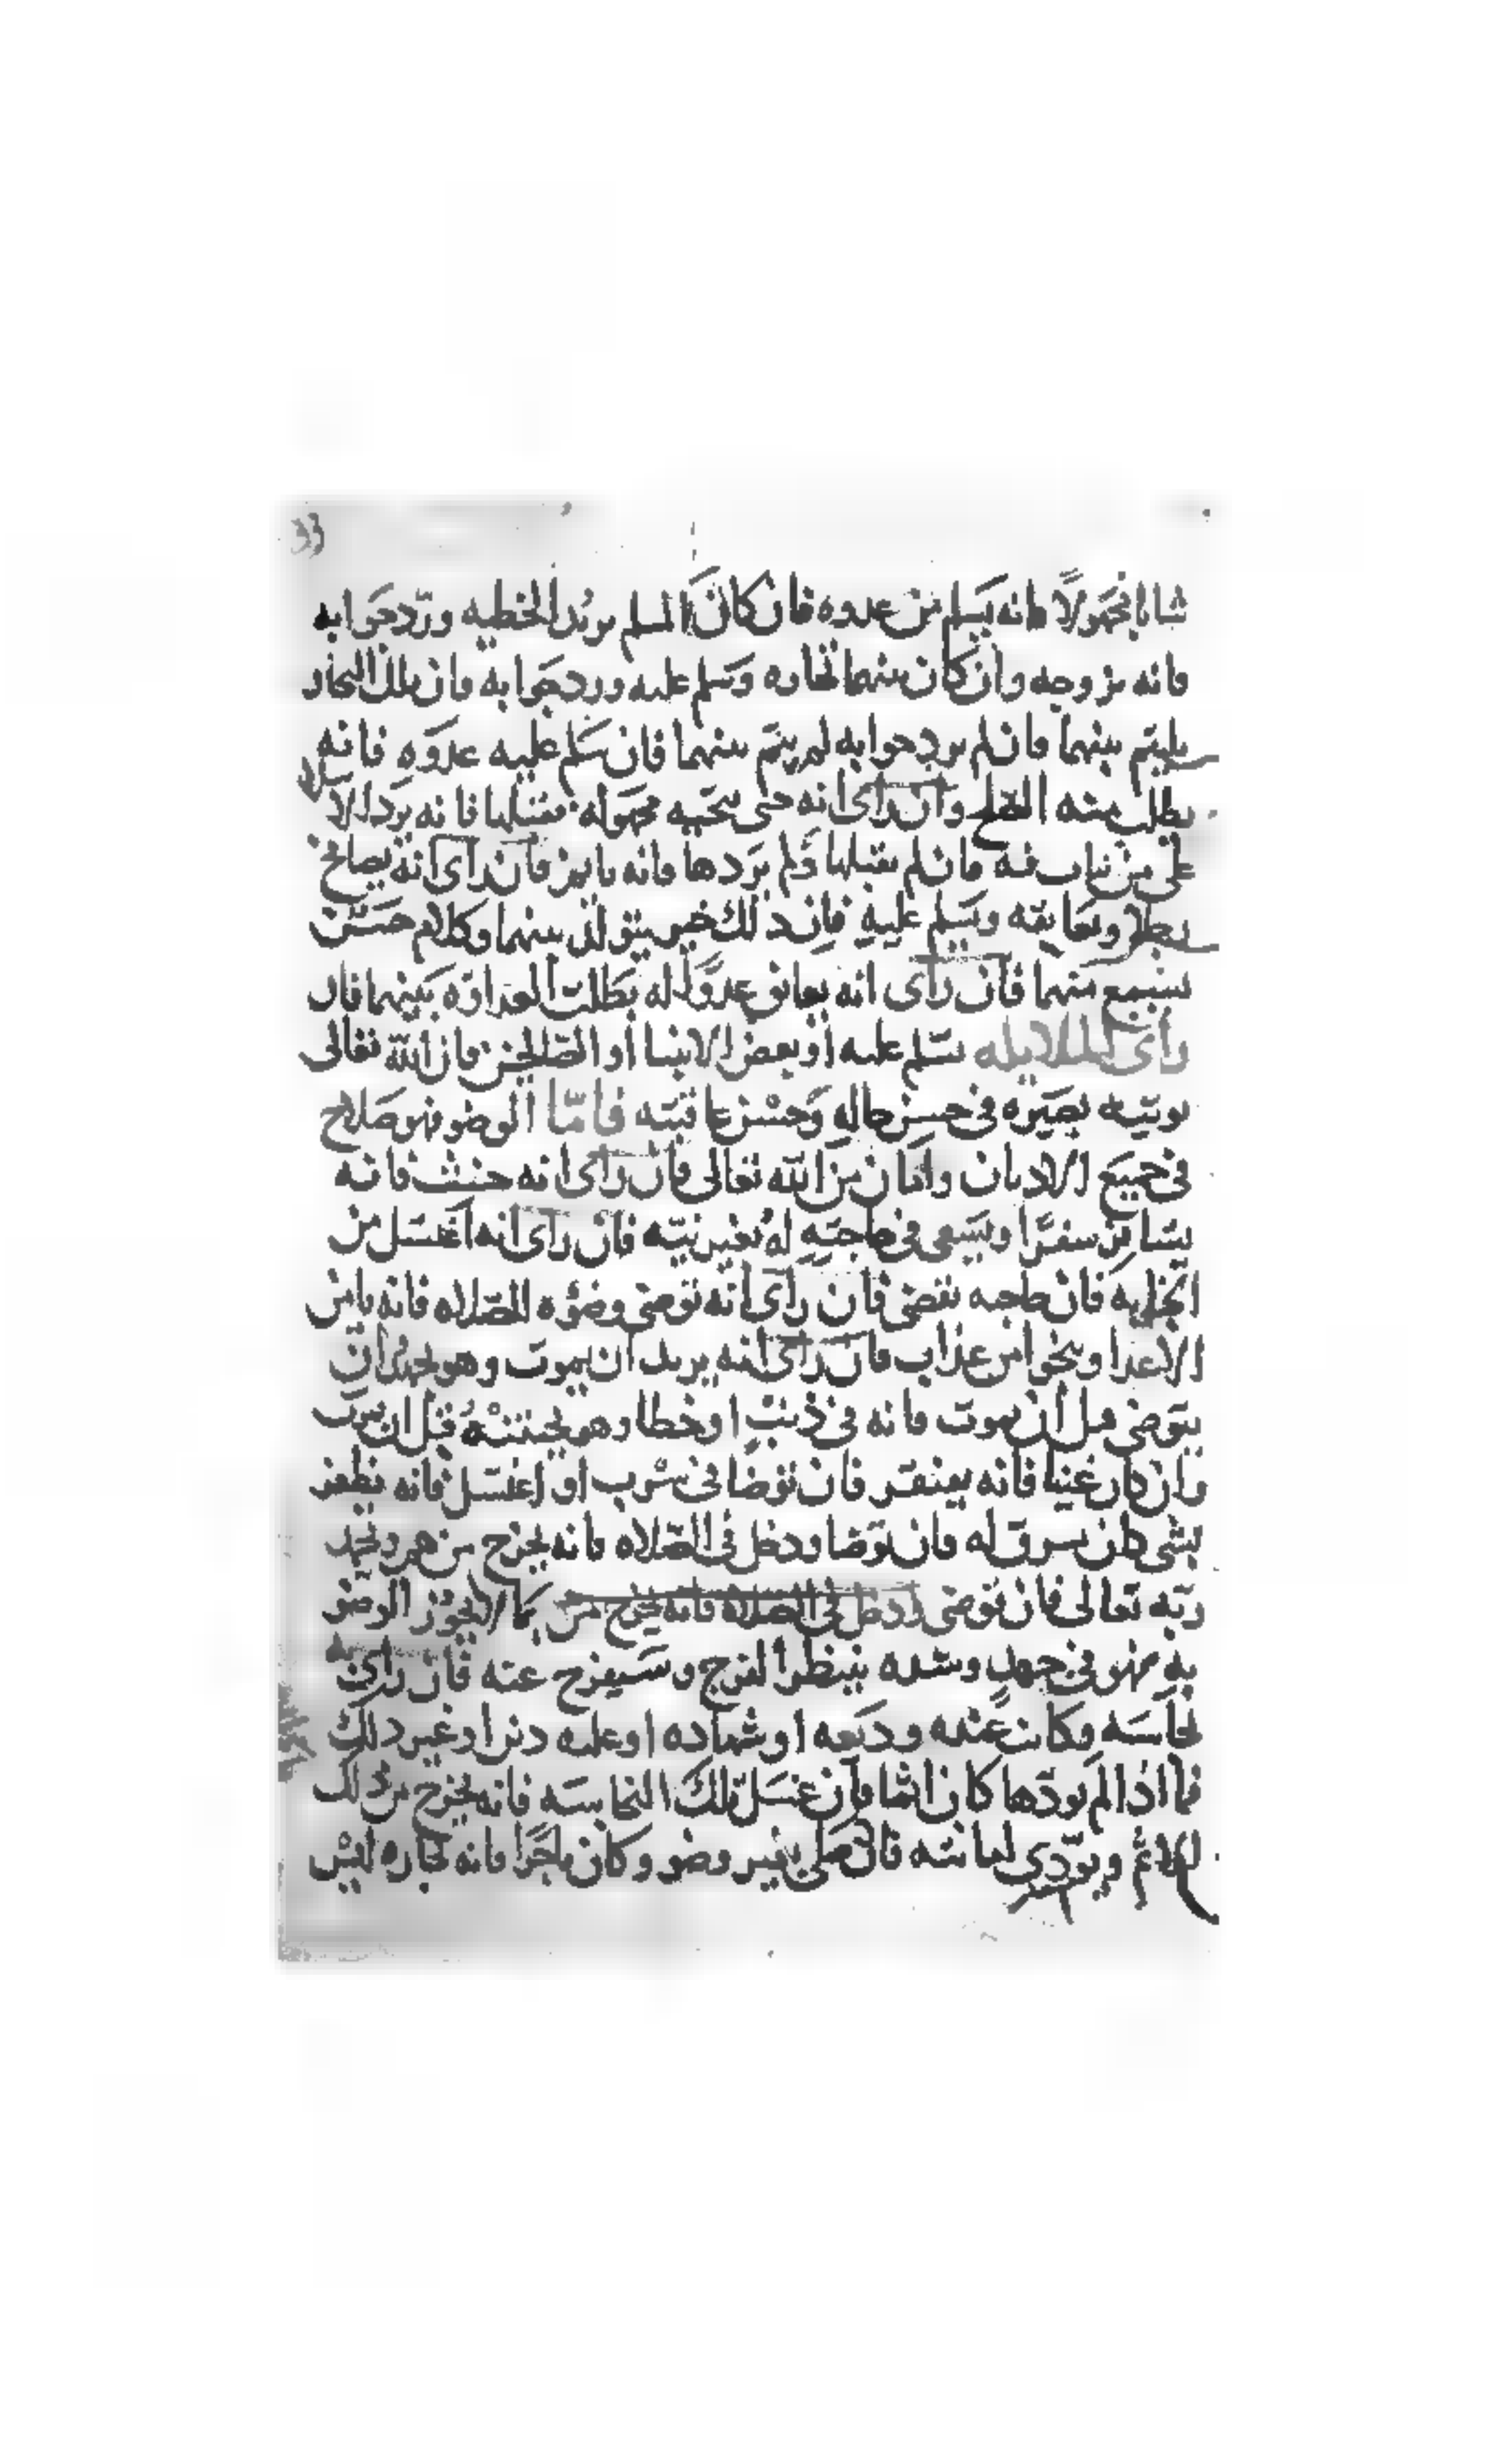 شابا مجهولا فانه يسلم من عدوه فان كان المسلم يريد الخطيه ورد جوابه
فانه يزوجه وان كان بينهما تجاره وسلم عليه ورد جوابه فان تلك التجار
يليتم بينهما فان لم يرد جوابه لم يتم بينهما فان سلم عليه عدوه فانه
يطلب منه الصلح وان راى انه حيى بتحيه مجهوله فقبلها فانه يرد السلا
على من فان لم يقبلها ولم يردها فانه فان راى انه يصافح
رجلا ويعانقه ويسلم عليه فان ذلك خير بينهما وكلام حسن
يسمع منهما فان راى انه يعانق عدوا له بطلت العداوه بينهما فان
راى الملايكه تسلم عليه او بعض الانبيا او الصالحين فان الله تعالى
يوتيه بصيره في حسن حاله وحسن عاقبته فاما الوضو فهو صلاح
في جميع الاديان وامان من الله تعالى فان راى انه حنث فانه
يسافر سفرا ويسعى في حاجته له بغير نيته فان راى انه اغتسل من
الجنابه فان حاجته تقضى فان راى انه توضى وضوه للصلاه فانه يامن
الاعدا وينجوا من عذاب فان راى انه يريد ان يموت وهو يجهد ان
يتوضى قبل ان يموت فانه في ذنب او خطا وهو يجتنبه قبل ان يموت
وان كان غنيا فانه يفتقر فان توضا في سرب او اغتسل فانه يظفر
بشي كان سرق له فان توضا ودخل في الصلاه فانه يخرج من هم ويحمد
ربه تعالى فان توضى ودخل في الصلاه فانه يخرج من بما لا يجوز الوضو
به فهو في جهد وشده ينتظر الفرج وسيفرج عنه فان راى به
نجاسه وكانت عنده وديعه او شهاده او عليه دين او غير ذلك
مما اذا لم يودها كان اثما فان غسل تلك النجاسه فانه يخرج من ذلك
الاثم ويودى فان صلى بغير وضو وكان تاجرا فانه تجاره ليس